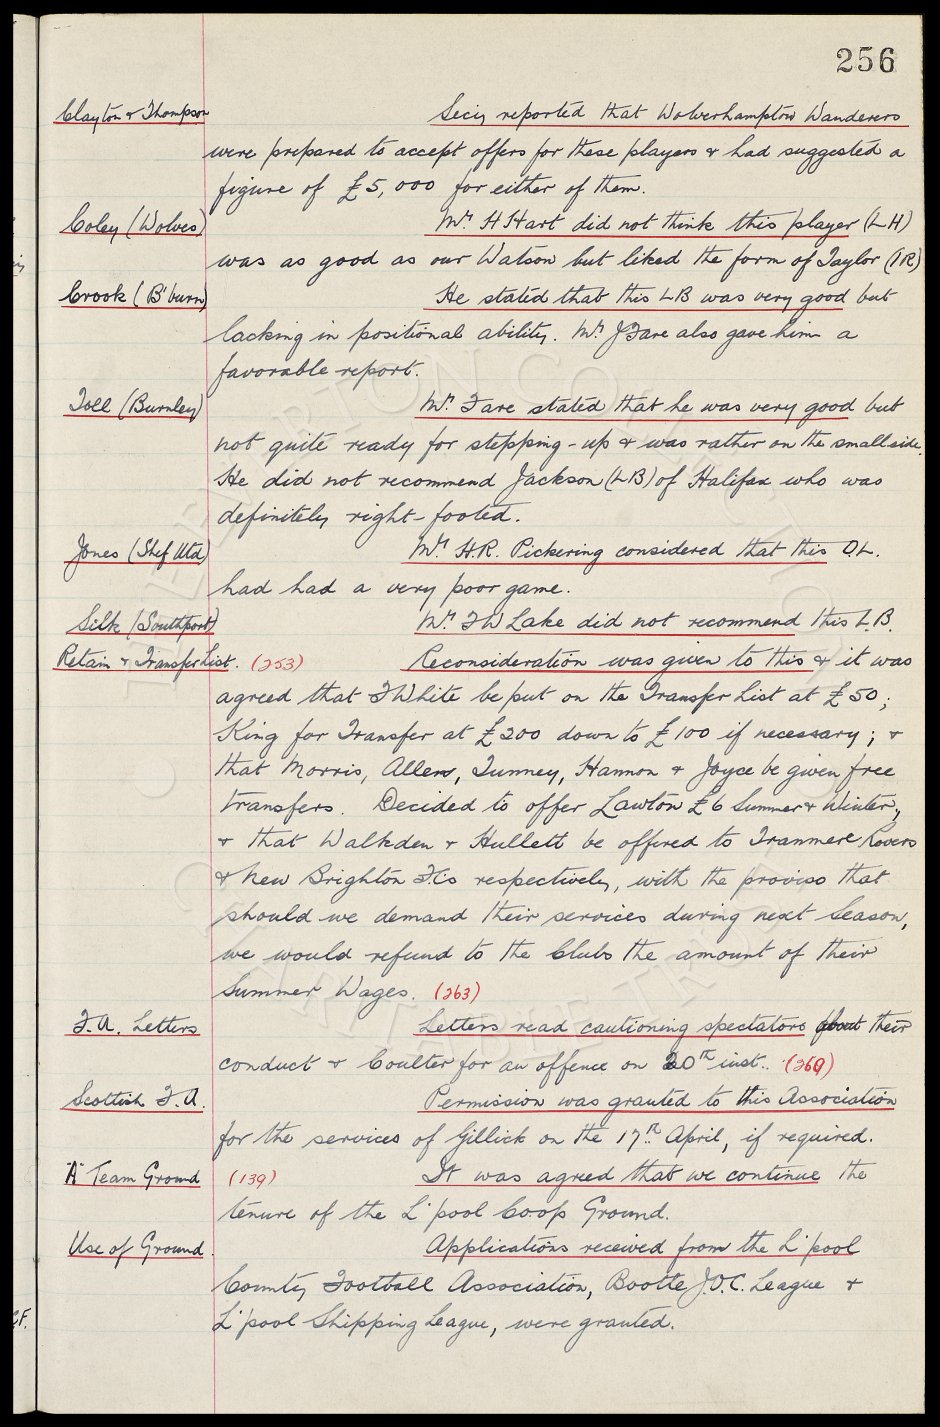 256
Clayton & Thompson Secy reported that Wolverhampton Wanderers
were prepared to accept offers for these players & had suggested a
figure of £5,000 for either of them.
Coley (Wolves) Mr. H Hart did not think this player (LH)
was as good as our Watson but liked the form of Taylor (IR)
Crook (B'burn) He stated that this LB was very good but
lacking in positional ability. Mr. J Fare also gave him a
favorable report.
Toll (Burnley) Mr. Fare stated that he was very good but
not quite ready for stepping-up & was rather on the small side.
He did not recommend Jackson (LB) of Halifax who was
definitely right-footed.
Jones (Shef Utd) Mr. H.R. Pickering considered that this O.L.
had had a very poor game.
Silk (Southport) Mr. FW Lake did not recommend this L.B.
Retain & Transfer List. (253) Reconsideration was given to this & it was
agreed that T White be put on the Transfer List at £50;
King for Transfer at £200 down to £100 if necessary; &
that Morris, Allen, Tunney, Hannon & Joyce be given free
transfers. Decided to offer Lawton £6 Summer & Winter,
& that Walkden & Hullett be offered to Tranmere Rovers
& New Brighton F.Cs respectively, with the proviso that
should we demand their services during next Season,
we would refund to the Clubs the amount of their
Summer Wages. (263)
F.A. Letters Letters read cautioning spectators about their
conduct & Coulter for an offence on 20th inst.. (260)
Scottish F.A. Permission was granted to this Association
for the services of Gillick on the 17th April, if required.
"A" Team Ground (139) It was agreed that we continue the
tenure of the L'pool Co.ops Ground.
Use of Ground. Applications received from the L'pool
County Football Association, Bootle J.O.C. League &
L'pool Shipping League, were granted.
CF.